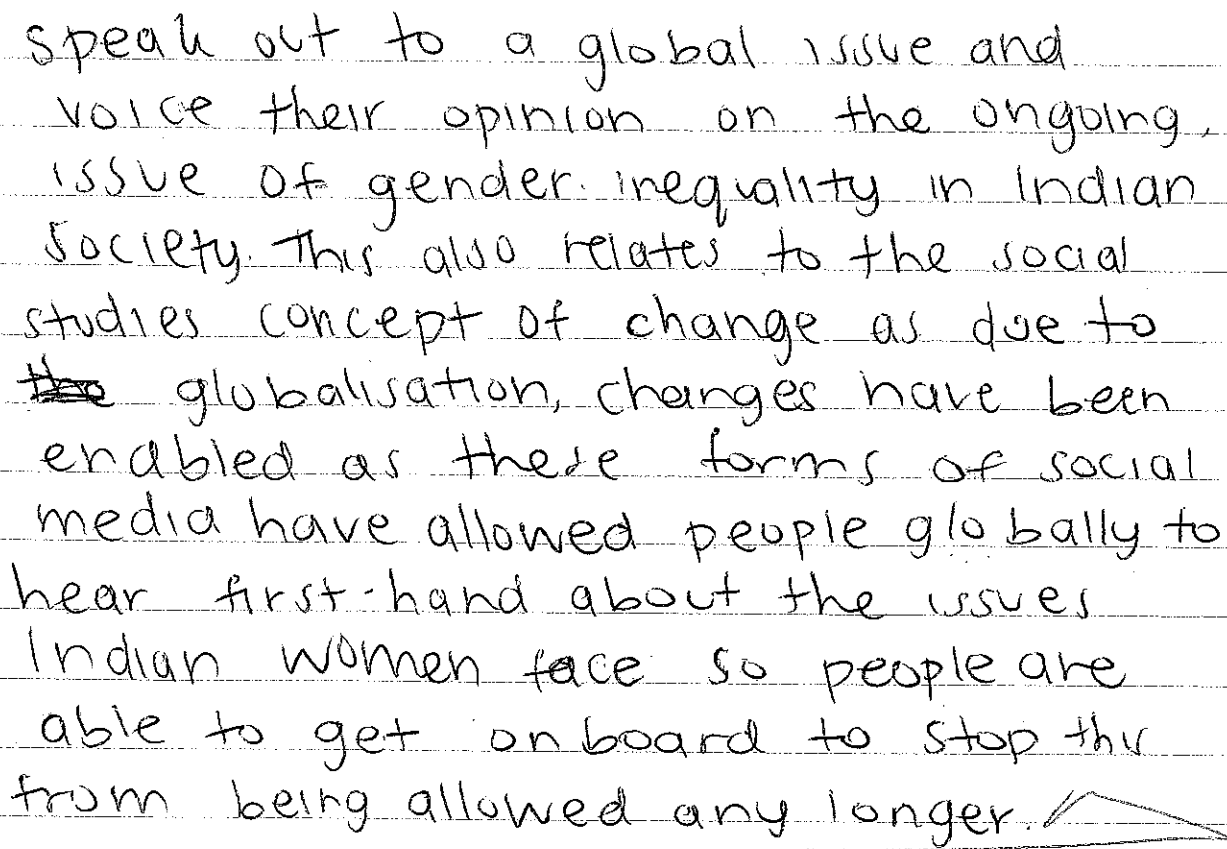 speak out to a global issue and
voice their opinion on the ongoing
issue of gender inequality in Indian
society. This also relates to the social
studies concept of change as due to
the globalisation, changes have been
enabled as these forms of social
media have allowed people globally to
hear first-hand about the issues
Indian women face so people are
able to get onboard to stop this
from being allowed any longer.